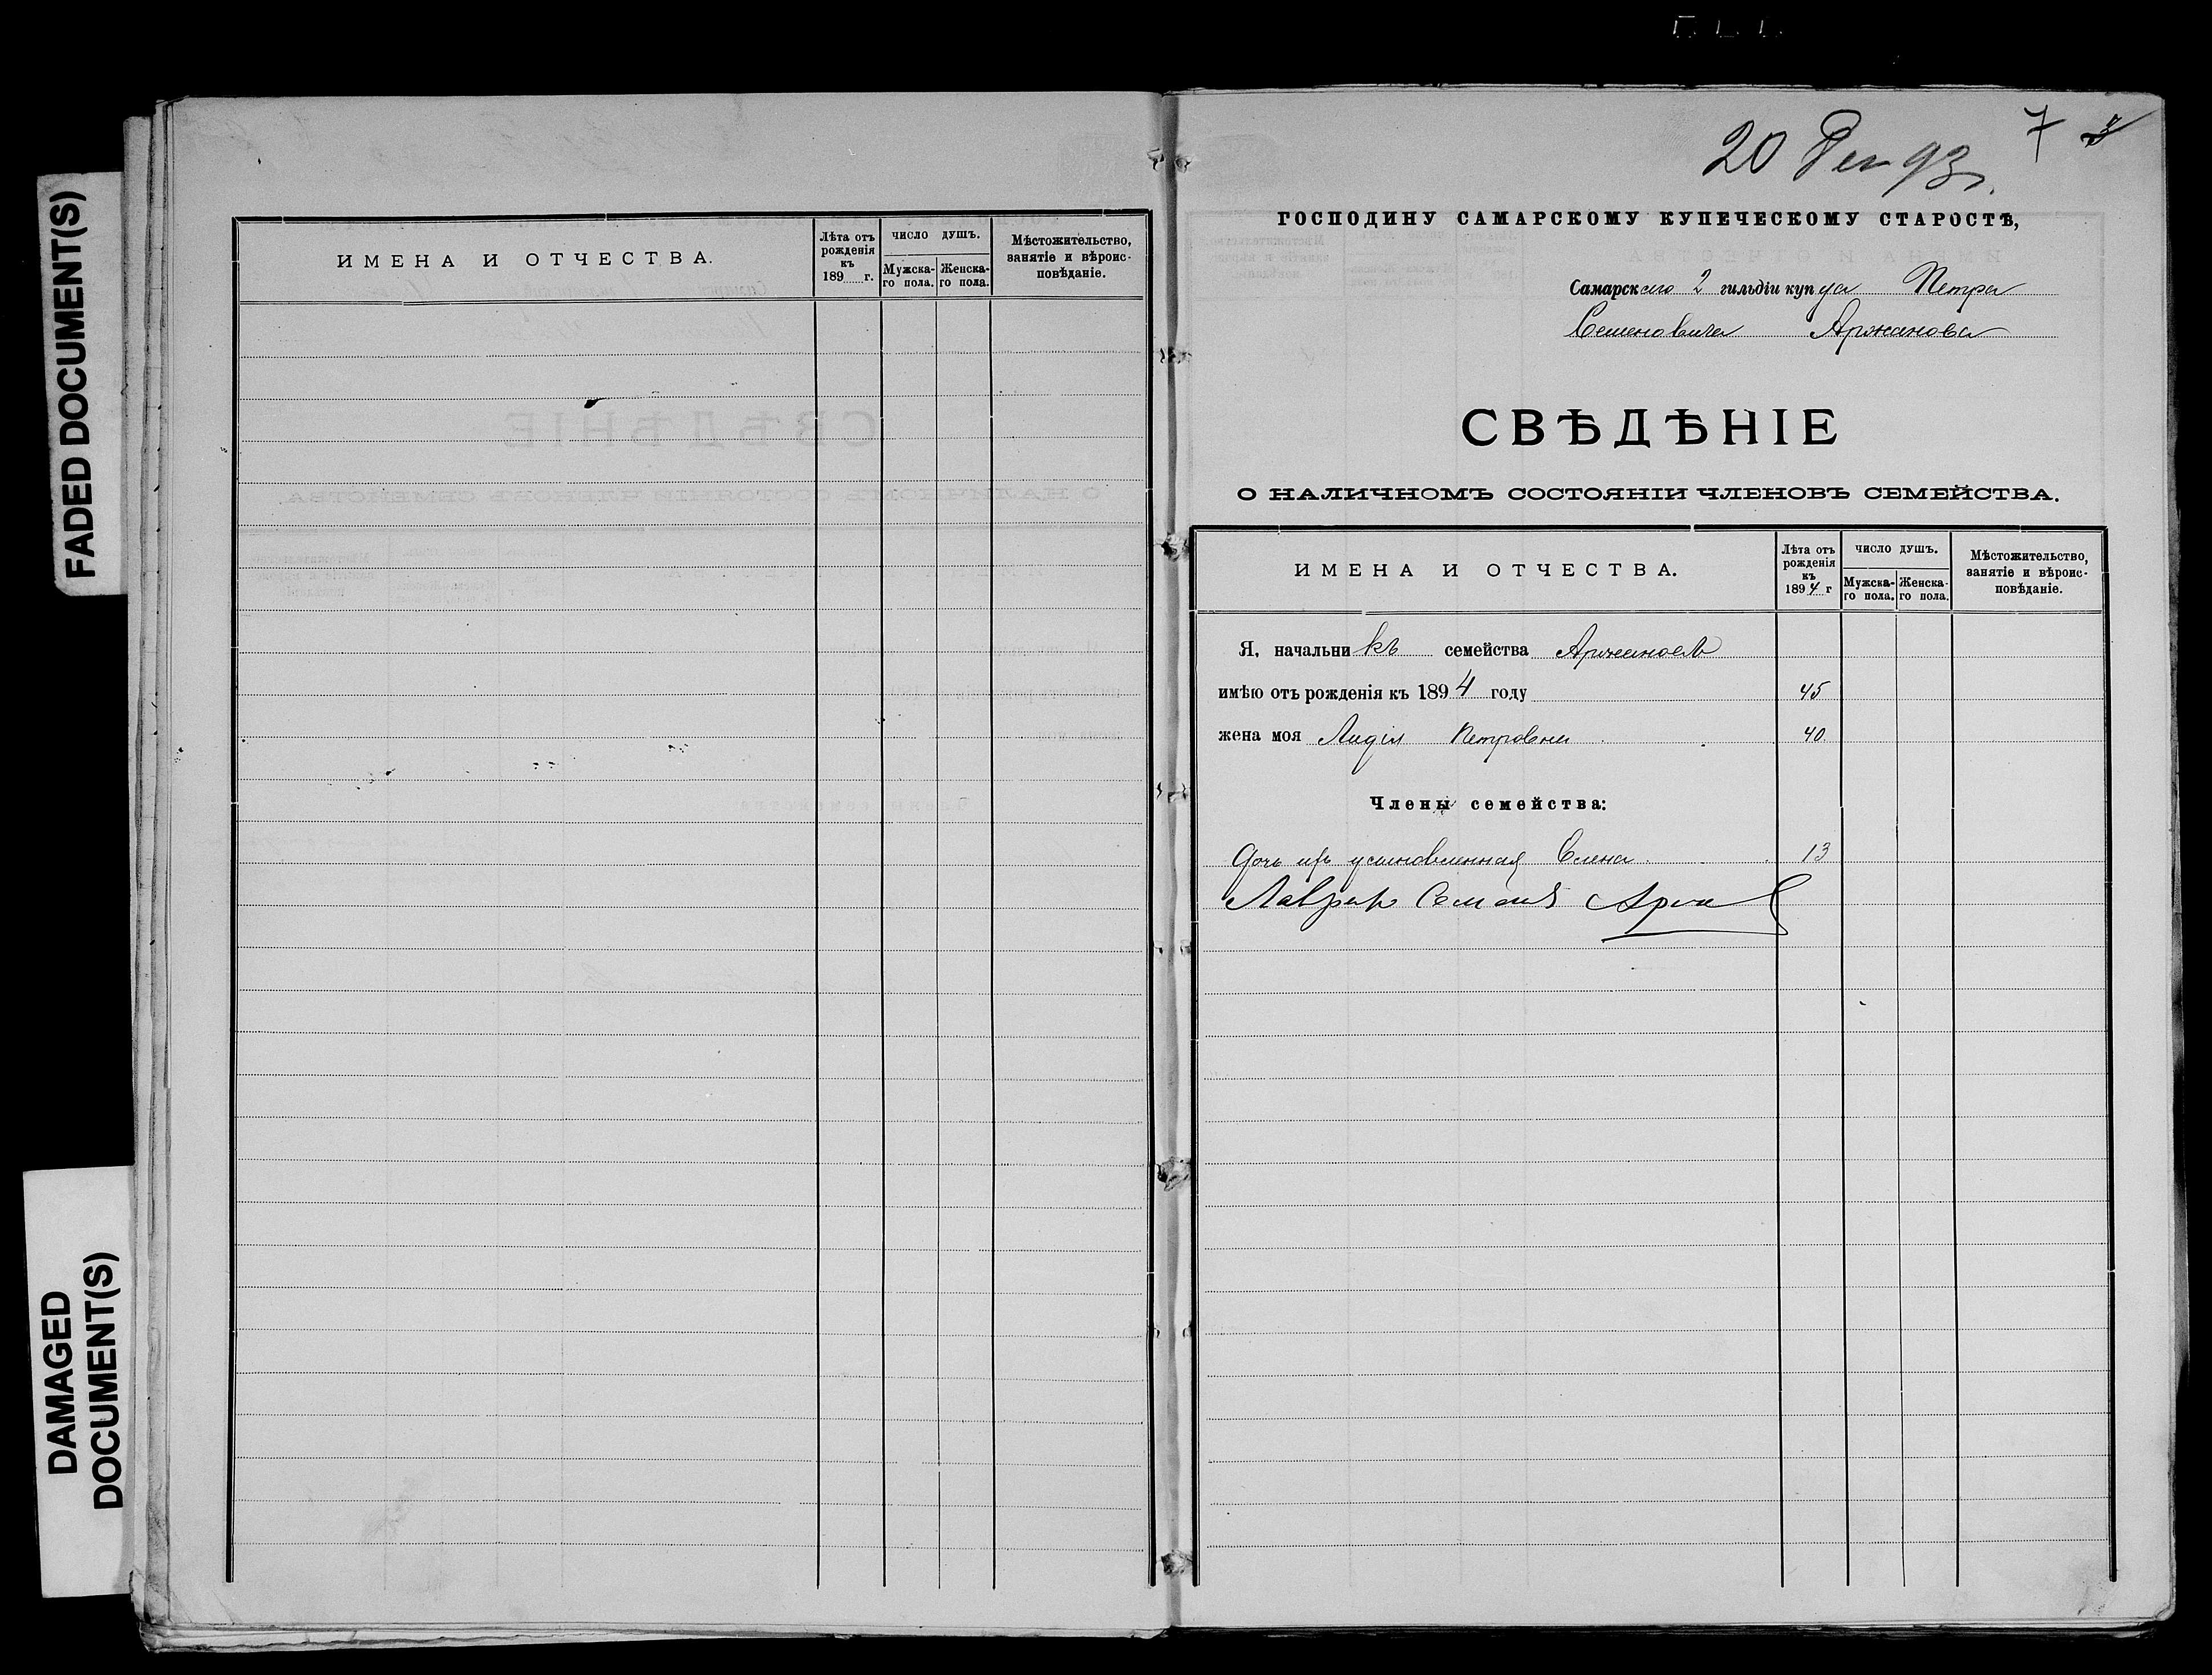 FADED DOCUMENT(S)
DAMAGED
DOCUMENT(S)
ИМЕНА И ОТЧЕСТВА.
Лѣта отъ
рожденія
къ
189 г.
ЧИСЛО ДУШЪ.
Мужска-
го пола.
Женска-
го пола.
Мѣстожительство,
занятіе и вѣроис-
повѣданіе.
20 Дек 93 г.
7
ГОСПОДИНУ САМАРСКОМУ КУПЕЧЕСКОМУ СТАРОСТѢ,
Самарскаго 2 гильдіи купца Петра
Семеновича Аржанова
СВѢДѢНІЕ
О НАЛИЧНОМЪ СОСТОЯНІИ ЧЛЕНОВЪ СЕМЕЙСТВА.
ИМЕНА И ОТЧЕСТВА.
Лѣта отъ
рожденія
къ
1894 г
ЧИСЛО ДУШЪ.
Мужска-
го пола.
Женска-
го пола.
Мѣстожительство,
занятіе и вѣроис-
повѣданіе.
Я, начальникъ семейства Аржановъ
имѣю отъ рожденія къ 1894 году 45
жена моя Лидія Петровна 40
Члены семейства:
Дочь ихъ усыновленная Елена 13